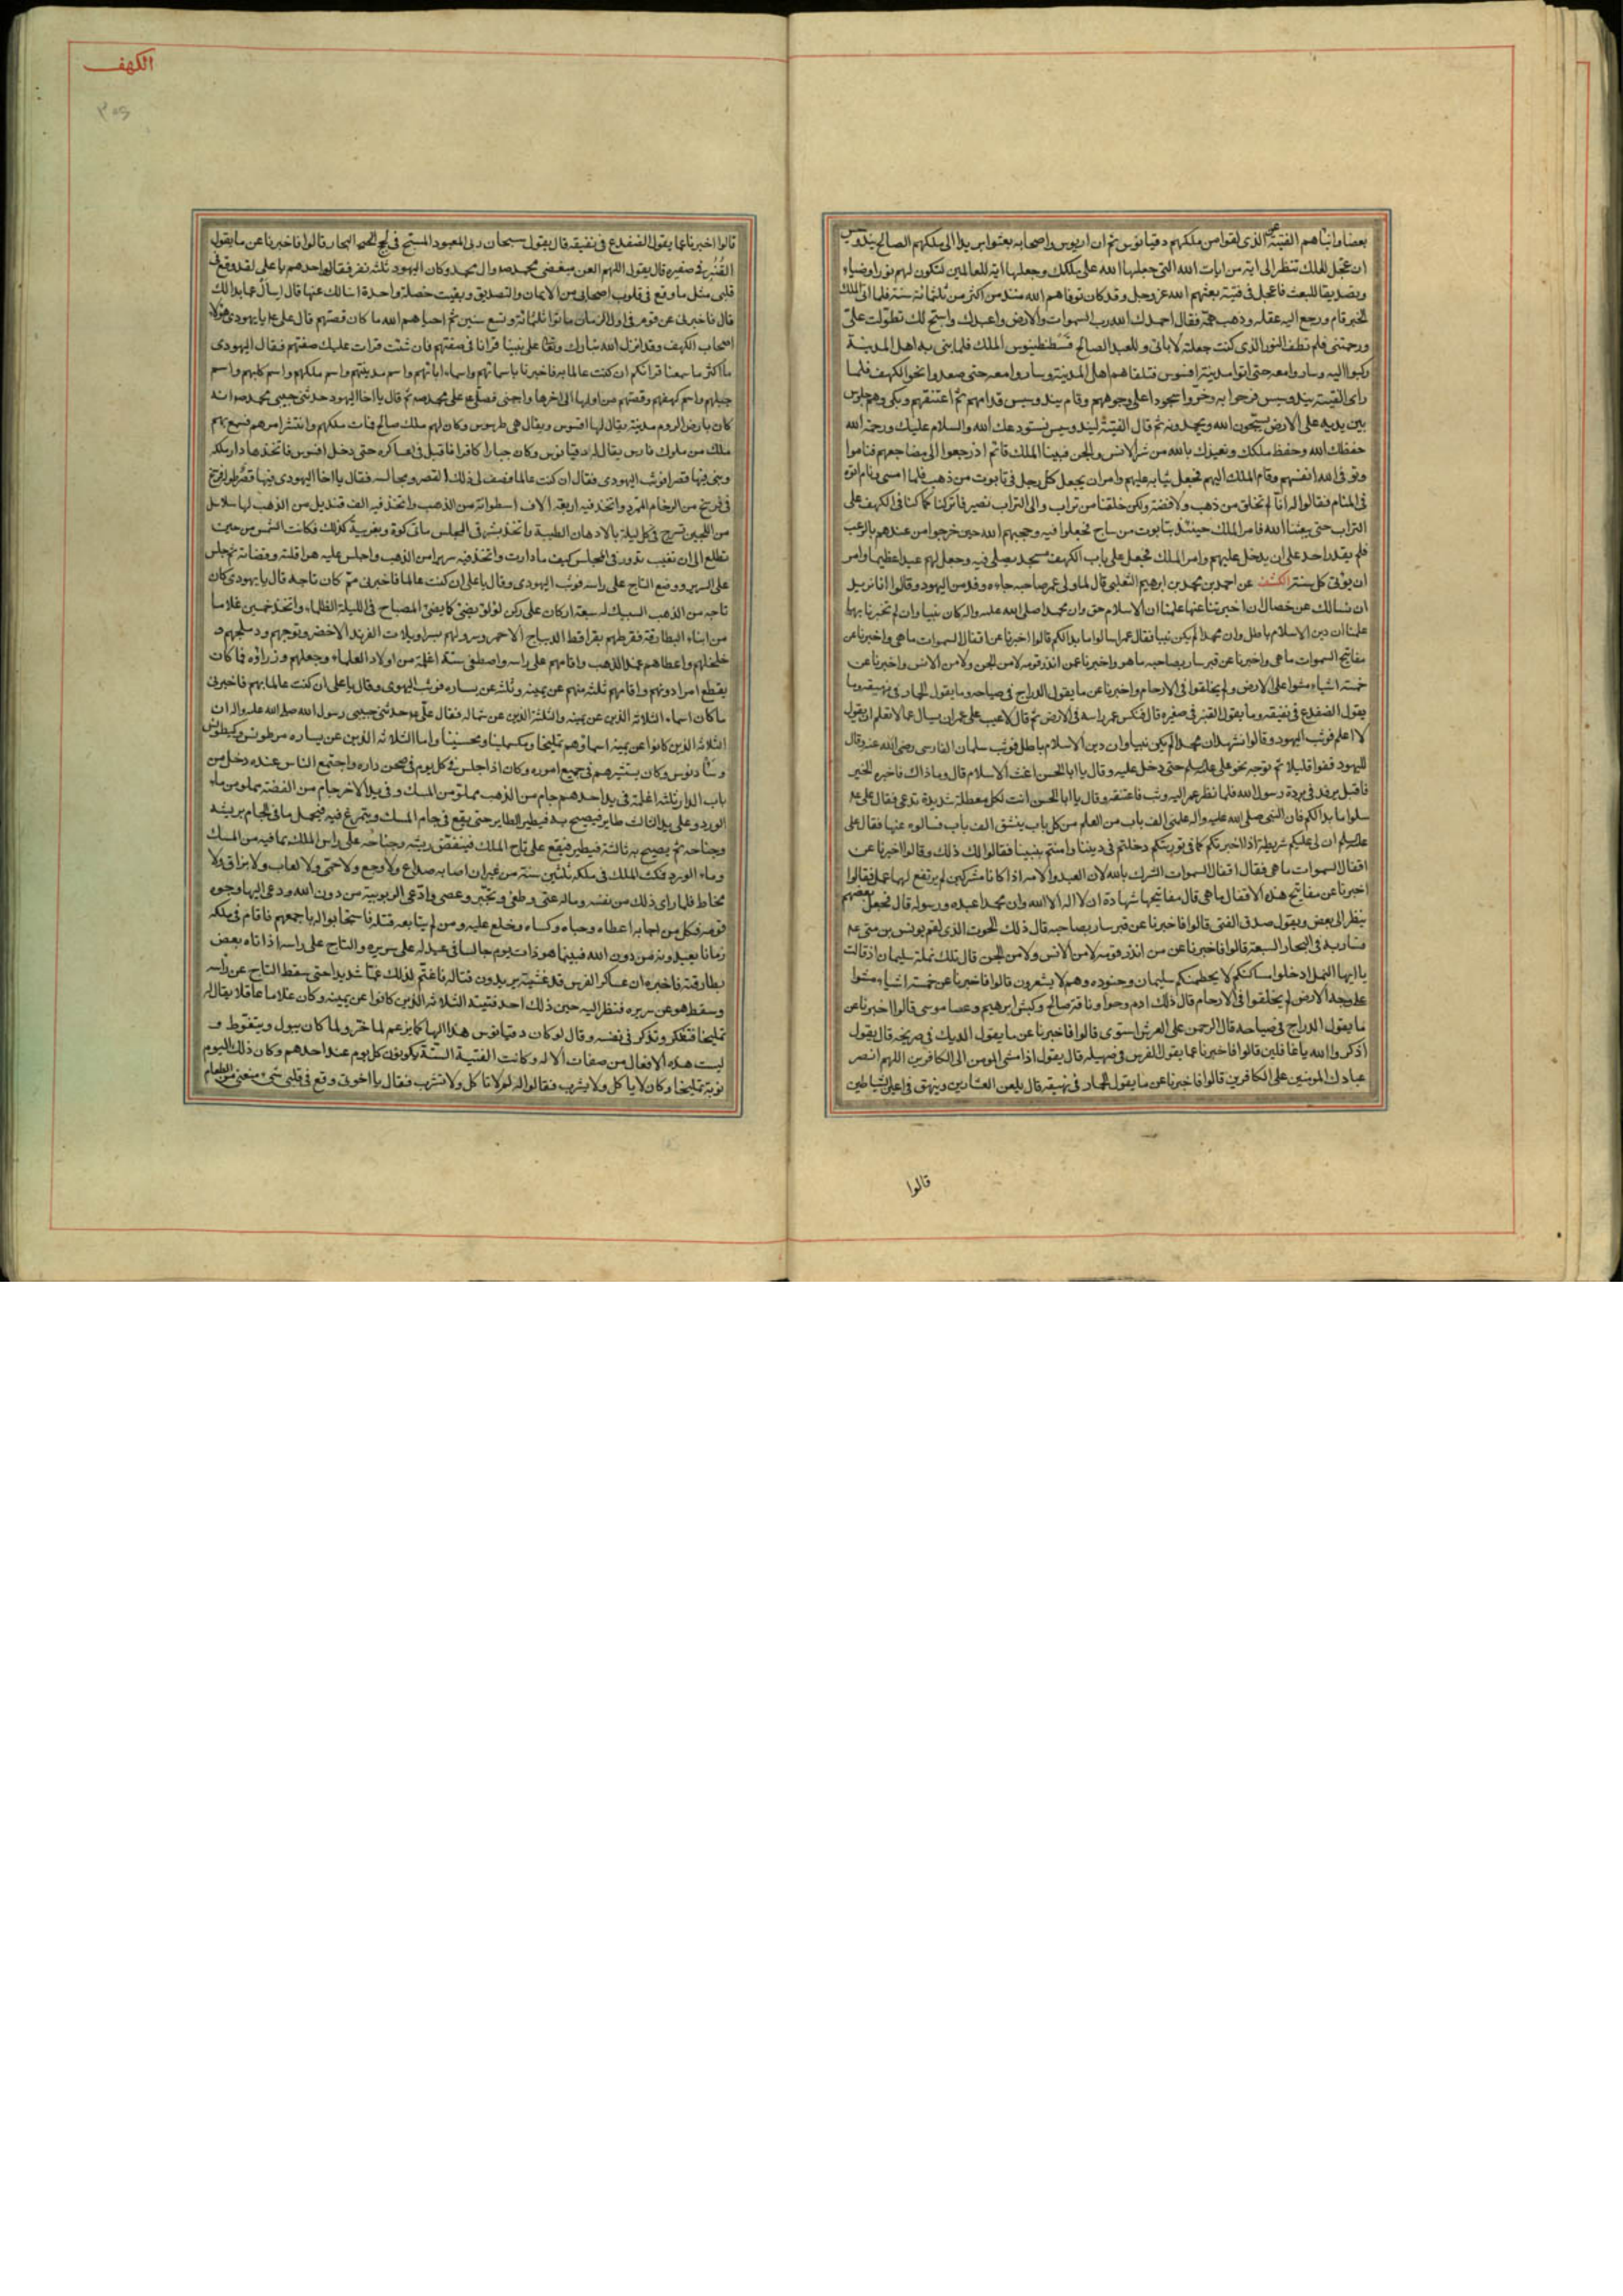 بعضا وانباهم الفتية الذى لقوا من ملكهم دقيانوس ثم ان اريوس واصحابه بعثوا بريدا الى ملكهم الصالح بيدوسيس
ان عجل لعلك تنظر الى اية من ايات الله التى جعلها الله على ملكك وجعلها اية للعالمين لتكون لهم نورا وضياء
وتصديقا للبعث فاعجل فى فتية بعثهم الله عز وجل وقد كان توفاهم الله منذ من اكثر من ثلثمائة سنة فلما اتى الملك
الخبر قام ورجع اليه عقله وذهب همه فقال احمدك اللهم رب السموات والارض واعبدك واسبح لك تطولت على
ورحمتنى فلم تطف النور الذى كنت جعلته لابائى وللعبد الصالح قسطنطينوس الملك فلما نبى به اهل المدينة
ركبوا اليه وساروا معه حتى اتوا مدينة افسوس فتلقاهم اهل المدينة وساروا معه حتى صعدوا نحو الكهف فلما
راى الفتية بيدوسيس فرحوا به وخروا سجودا على وجوههم وقام بيدوسيس قدامهم ثم اعتنقهم وبكى وهم جلوس
بين يديه على الارض يسبحون الله ويحمدونه ثم قال الفتية لبيدوسيس نستودعك الله والسلام عليك ورحمة الله
حفظك الله وحفظ ملكك ونعيذك بالله من شر الانس والجن فبينا الملك قائم اذ رجعوا الى مضاجعهم فناموا
وتوفى الله انفسهم وقام الملك اليهم فجعل ثيابه عليهم وامر ان يجعل كل رجل فى تابوت من ذهب فلما امسى ونام اتوه
فى المنام فقالوا له انا لم نخلق من ذهب ولا فضة ولكن خلقنا من تراب والى التراب نصير فاتركنا كما كنا فى الكهف على
التراب حتى يبعثنا الله فامر الملك حينئذ بتابوت من ساج فجعلوا فيه وحجبهم الله حين خرجوا من عندهم بالرعب
فلم يقدر احد على ان يدخل عليهم وامر الملك فجعل على باب الكهف مسجد يصلى فيه وجعل لهم عيدا عظيما وامر
ان يؤتى كل سنة الكشف عن احمد بن محمد بن ابرهيم الثعلبى قال لما ولى عمر صاحبه جاءه وفد من اليهود وقالوا انا نريد
ان نسالك عن خصال ان اخبرتنا عنها علمنا ان الاسلام حق وان محمدا صلى الله عليه واله كان نبيا وان لم تخبرنا بها
علمنا ان دين الاسلام باطل وان محمدا لم يكن نبيا فقال عمر اسالوا ما بدالكم قالوا اخبرنا عن اقفال السموات ما هى واخبرنا عن
مفاتيح السموات ما هى واخبرنا عن قبر سار بصاحبه ما هو واخبرنا عمن انذر قومه لا من الجن ولا من الانس واخبرنا عن
خمسة اشياء مشوا على الارض ولم يخلقوا فى الارحام واخبرنا عن ما يقول الدراج فى صياحه وما يقول الحمار فى نهيقه وما
يقول الضفدع فى نقيقه وما يقول القنبر فى صفيره قال فنكس عمر راسه فى الارض ثم قال لا عيب على عمر ان يسال عما لا تعلم ان يقول
لا اعلم فوثب اليهود وقالوا نشهد ان محمدا لم يكن نبيا وان دين الاسلام باطل فوثب سلمان الفارسى رضى الله عنه وقال
لليهود قفوا قليلا ثم توجه نحو على عليه السلم حتى دخل عليه وقال يا ابا الحسن اغث الاسلام قال وما ذاك فاخبره الخبر
فاقبل يرفل فى بردة رسول الله فلما نظر عمر اليه وثب فاعتنقه وقال يا ابا الحسن انت لكل معضلة شديدة تدعى فقال على عم
سلوا ما بدالكم فان النبى صلى الله عليه واله علمنى الف باب من العلم من كل باب ينشق الف باب فسالوه عنها فقال على
عليه السلم ان لى عليكم شريطة اذا اخبرتكم كما فى توريتكم دخلتم فى ديننا وامنتم بنبينا فقالوا لك ذلك وقالوا اخبرنا عن
اقفال السموات ما هى فقال اقفال السموات الشرك بالله لان العبد والامة اذا كانا مشركين لم يرتفع لهما عمل فقالوا
اخبرنا عن مفاتيح هذه الاقفال ما هى قال مفاتيحها شهادة ان لا اله الا الله وان محمدا عبده ورسوله قال فجعل بعضهم
ينظر الى بعض ويقول صدق الفتى قالوا فاخبرنا عن قبر سار بصاحبه قال ذلك الحوت الذى لقم يونس بن متى عم
فسار به فى البحار السبعة قالوا فاخبرنا عن من انذر قومه لا من الانس ولا من الجن قال تلك نملة سليمان اذ قالت
يا ايها النمل ادخلوا مساكنكم لا يحطمنكم سليمان وجنوده وهم لا يشعرون قالوا فاخبرنا عن خمسة اشياء مشوا
على وجه الارض لم يخلقوا فى الارحام قال ذلك ادم وحوا وناقة صالح وكبش ابرهيم وعصا موسى قالوا اخبرنا عن
ما يقول الدراج فى صياحه قال الرحمن على العرش استوى قالوا فاخبرنا عن ما يقول الديك فى صريخه قال يقول
اذكروا الله يا غافلين قالوا فاخبرنا عما يقول الفرس فى صهيله قال يقول اذا مشى المومن الى الكافرين اللهم انصر
عبادك المومنين على الكافرين قالوا فاخبرنا عن ما يقول الحمار فى نهيقه قال يلعن العشارين وينهق فى اعين الشياطين
قالوا
الكهف
قالوا اخبرنا عما يقول الضفدع فى نقيقه قال يقول سبحان ربى المعبود المسبح فى لجج البحار قالوا فاخبرنا عن ما يقول
القنبر فى صفيره قال يقول اللهم العن مبغضى محمد وال محمد وكان اليهود ثلثة نفر فقالوا احدهم يا على لقد وقع فى
قلبى مثل ما وقع فى قلوب اصحابى من الايمان والتصديق وبقيت خصلة واحدة اسالك عنها قال اسال عما بدالك
قال فاخبرنى عن قوم فى اول الزمان ماتوا ثلثمائة وتسع سنين ثم احياهم الله ما كان قصتهم قال على عم يا يهودى هؤلاء
اصحاب الكهف وقد انزل الله تبارك وتعالى على نبينا قرانا فى صفتهم فان شئت قرات عليك صفتهم فقال اليهودى
ما اكثر ما سمعنا قرانكم ان كنت عالما بهم فاخبرنا باسمائهم واسماء ابائهم واسم مدينتهم واسم ملكهم واسم كلبهم واسم
جبلهم واسم كهفهم وقصتهم من اولها الى اخرها واحتبى فصلى على محمد ثم قال يا اخا اليهود حدثنى حبيبى محمد انه
كان بارض الروم مدينة يقال لها افسوس ويقال هى طرسوس وكان لهم ملك صالح فمات ملكهم وانتشر امرهم فسمع بهم
ملك من ملوك فارس يقال له دقيانوس وكان جبارا كافرا فاقبل فى عساكره حتى دخل افسوس فاتخذها دار ملكه
وبنى فيها قصرا فوثب اليهودى فقال ان كنت عالما فصف لى ذلك القصر ومجالسه فقال يا اخا اليهودى فيها قصرا طوله فرسخ
فى فرسخ من الرخام الممرد واتخذ فيه اربعة الاف اسطوانة من الذهب واتخذ فيه الف قنديل من الذهب لها سلاسل
من اللجين تسرج فى كل ليلة بالادهان الطيبة واتخذ بشرقى المجلس مائتى كوة وبغربيه كذلك فكانت الشمس من حيث
تطلع الى ان تغيب تدور فى المجلس كيف ما دارت واتخذ فيه سريرا من الذهب
على السرير ووضع التاج على راسه فوثب اليهودى وقال يا على ان كنت عالما فاخبرنى مم كان تاجه قال يا يهودى كان
تاجه من الذهب السبيك له سبعة اركان على ركن لؤلؤ يضئ كما يضئ المصباح فى الليلة الظلماء واتخذ خمسين غلاما
من ابناء البطارقة فقرطهم بقراقط الديباج الاحمر وسرولهم بسراويلات الفرند الاخضر وتوجهم ودملجهم و
خلخلهم واعطاهم عمد الذهب واقامهم على راسه واصطفى ستة اغلمة من اولاد العلماء وجعلهم وزراؤه فما كان
يقطع امرا دونهم واقامهم ثلثة منهم عن يمينه وثلثة عن يساره فوثب اليهودى وقال يا على ان كنت عالما بهم فاخبرنى
ما كان اسماء الثلاثة الذين عن يمينه والثلثة الذين عن شماله فقال على عم حدثنى حبيبى رسول الله صلى الله عليه واله ان
الثلاثة الذين كانوا عن يمينه اسماؤهم تمليخا ومكسلمينا ومحسمينا واما الثلاثة الذين عن يساره مرطونس وكيطونس
وسادنوس وكان يستشيرهم فى جميع اموره وكان اذا جلس فى كل يوم فى صحن داره واجتمع الناس عنده دخل من
باب الدار ثلثة اغلمة فى يد احدهم جام من الذهب مملو من المسك وفى يد الاخر جام من الفضة مملو من ماء
الورد وعلى يد الثالث طاير فيصيح به فيطير الطاير حتى يقع فى جام المسك ويتمرغ فيه فيحمل ما فى الجام بريشه
وجناحه ثم يصيح به ثالثة فيطير فيقع على تاج الملك فينفض ريشه وجناحه على راس الملك بما فيه من المسك
وماء الورد فمكث الملك فى ملكه ثلثين سنة من غير ان اصابه صداع ولا وجع ولا حمى ولا لعاب ولا بزاق ولا
مخاط فلما راى ذلك من نفسه وماله عتى وطغى وتجبر وعصى وادعى الربوبية من دون الله ودعى اليها وجوه
قومه فكل من اجابه اعطاه وحباه وكساه وخلع عليه ومن لم يتابعه قتله فاستجابوا له باجمعهم فاقام فى ملكه
زمانا يعبدونه من دون الله فبينما هو ذات يوم جالسا فى عيد له على سريره والتاج على راسه اذ اتاه بعض
بطارقته فاخبره ان عساكر الفرس قد غشيته يريدون قتاله فاغتم لذلك غما شديدا حتى سقط التاج عن راسه
وسقط هو عن سريره فنظر اليه حين ذلك احد فتيته الثلاثة الذين كانوا عن يمينه وكان غلاما عاقلا يقال له
تمليخا فتفكر وتذكر فى نفسه وقال لو كان دقيانوس هذا الها كما يزعم لما حزن ولما كان يبول ويتغوط و
ليست هذه الافعال من صفات الاله وكانت الفتية الستة يكونون كل يوم عند احدهم وكان ذلك اليوم
نوبة تمليخا وكان لا ياكل ولا يشرب فقالوا له لم لا تاكل ولا تشرب فقال يا اخوتى وقع فى قلبى شىء منعنى من الطعام